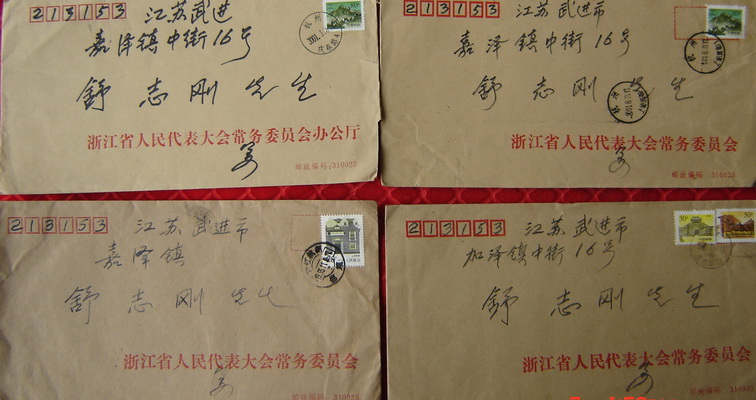 213153
江苏武进
嘉泽镇中街16号
舒志刚先生
浙江省人民代表大会常务委员会办公厅
姜
邮政编码:310025
213153
江苏武进市
嘉泽镇中街16号
舒志刚先生
杭州
浙江省人民代表大会常务委员会
姜
邮政编码 310025
213153
江苏武进市
嘉泽镇
舒志刚先生
浙江省人民代表大会常务委员会
姜
邮政编码 310025
213153
江苏武进市
加泽镇中街16号
舒志刚先生
浙江省人民代表大会常务委员会
姜
邮政编码 310025